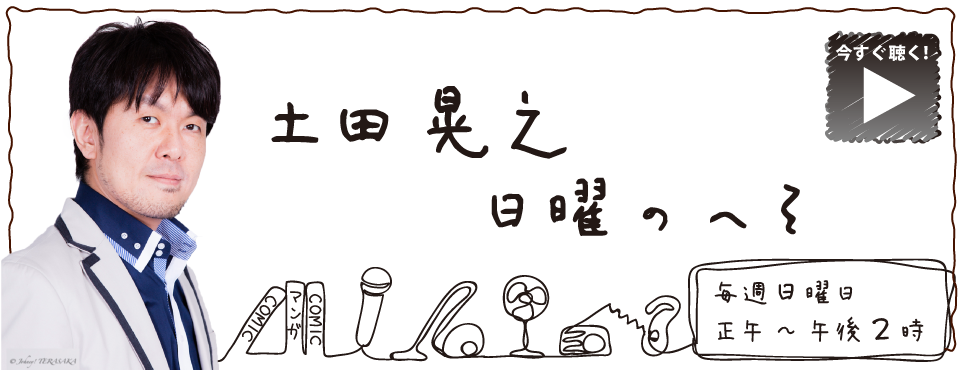 今すぐ聴く!
土田晃之
日曜のへそ
COMIC
マンガ
COMIC
毎週日曜日
正午〜午後2時
© Johnny! TERASAKA